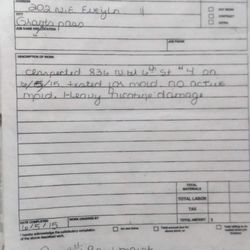 ADDRESS
202 N.E. Evelyn
CITY
Grants pass
JOB NAME AND LOCATION
DAY WORK
CONTRACT
EXTRA
JOB PHONE
DESCRIPTION OF WORK
Inspected 836 N.E. 6th St #4 on
6/5/15. tested for mold. no active
mold. Heavy nicotine damage
TOTAL MATERIALS
TOTAL LABOR
TAX
DATE COMPLETED
WORK ORDERED BY
TOTAL AMOUNT $
6/5/15
No one home
I hereby acknowledge the satisfactory completion
of the above described work.